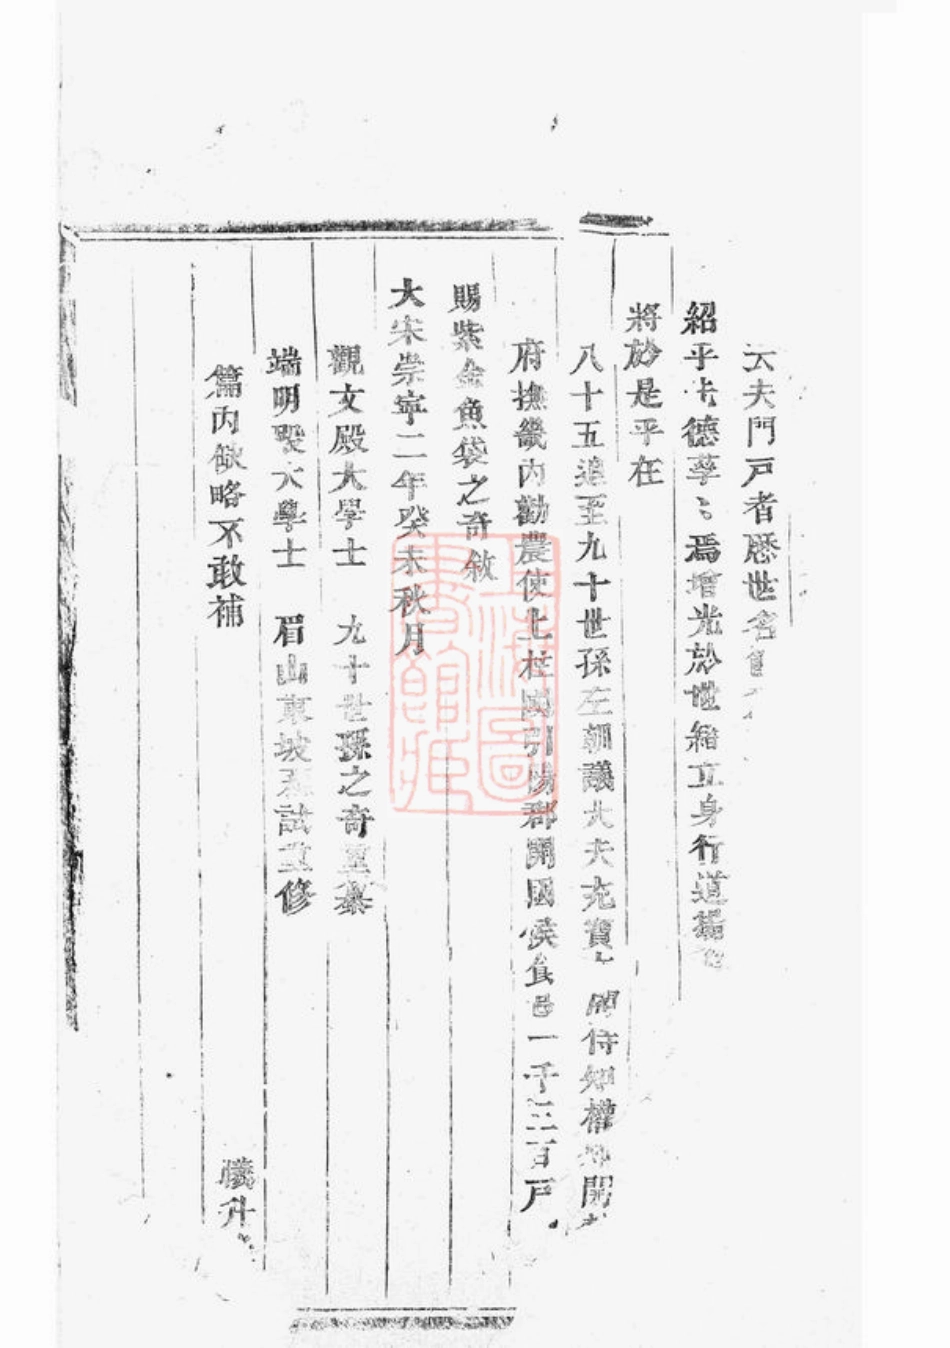 夫門戸者歴世名
紹乎 德孳〻焉增光於世緒立身行道揚
將於是乎在
八十五追至九十世孫左朝議大夫充寶 閣待知權 開
府撫畿內勸農使上柱國弋陽郡開國侯食邑一千三百戸
賜紫金魚袋之奇敘
大宋崇寧二年癸未秋月
觀文殿大學士 九十世孫之奇重纂
端明殿大學士 眉山東坡蘇試重修
篇内缺略不敢補 升
上海圖書館藏